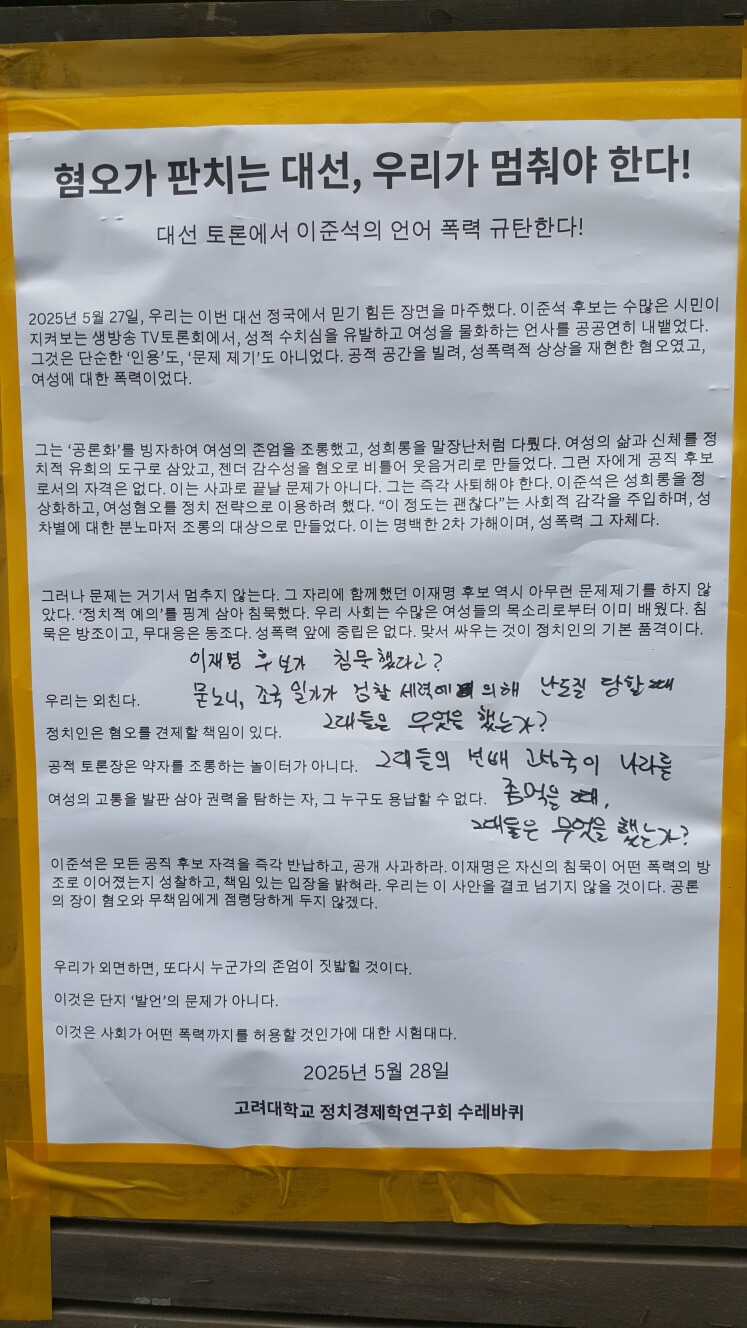 혐오가 판치는 대선, 우리가 멈춰야 한다!
대선 토론에서 이준석의 언어 폭력 규탄한다!
2025년 5월 27일, 우리는 이번 대선 정국에서 믿기 힘든 장면을 마주했다. 이준석 후보는 수많은 시민이
지켜보는 생방송 TV토론회에서, 성적 수치심을 유발하고 여성을 물화하는 언사를 공공연히 내뱉었다.
그것은 단순한 ‘인용’도, ‘문제 제기’도 아니었다. 공적 공간을 빌려, 성폭력적 상상을 재현한 혐오였고,
여성에 대한 폭력이었다.
그는 ‘공론화’를 빙자하여 여성의 존엄을 조롱했고, 성희롱을 말장난처럼 다뤘다. 여성의 삶과 신체를 정
치적 유희의 도구로 삼았고, 젠더 감수성을 혐오로 비틀어 웃음거리로 만들었다. 그런 자에게 공직 후보
로서의 자격은 없다. 이는 사과로 끝날 문제가 아니다. 그는 즉각 사퇴해야 한다. 이준석은 성희롱을 정
상화하고, 여성혐오를 정치 전략으로 이용하려 했다. “이 정도는 괜찮다”는 사회적 감각을 주입하며, 성
차별에 대한 분노마저 조롱의 대상으로 만들었다. 이는 명백한 2차 가해이며, 성폭력 그 자체다.
그러나 문제는 거기서 멈추지 않는다. 그 자리에 함께했던 이재명 후보 역시 아무런 문제제기를 하지 않
았다. ‘정치적 예의’를 핑계 삼아 침묵했다. 우리 사회는 수많은 여성들의 목소리로부터 이미 배웠다. 침
묵은 방조이고, 무대응은 동조다. 성폭력 앞에 중립은 없다. 맞서 싸우는 것이 정치인의 기본 품격이다.
이재명 후보가 침묵했다고?
우리는 외친다. 묻노니, 조국 일가가 검찰 세력에 의해 난도질 당할 때
정치인은 혐오를 견제할 책임이 있다. 그대들은 무엇을 했는가?
공적 토론장은 약자를 조롱하는 놀이터가 아니다. 그대들의 선배 고성국이 나라를
여성의 고통을 발판 삼아 권력을 탐하는 자, 그 누구도 용납할 수 없다. 좀먹을 때,
그대들은 무엇을 했는가?
이준석은 모든 공직 후보 자격을 즉각 반납하고, 공개 사과하라. 이재명은 자신의 침묵이 어떤 폭력의 방
조로 이어졌는지 성찰하고, 책임 있는 입장을 밝혀라. 우리는 이 사안을 결코 넘기지 않을 것이다. 공론
의 장이 혐오와 무책임에게 점령당하게 두지 않겠다.
우리가 외면하면, 또다시 누군가의 존엄이 짓밟힐 것이다.
이것은 단지 ‘발언’의 문제가 아니다.
이것은 사회가 어떤 폭력까지를 허용할 것인가에 대한 시험대다.
2025년 5월 28일
고려대학교 정치경제학연구회 수레바퀴